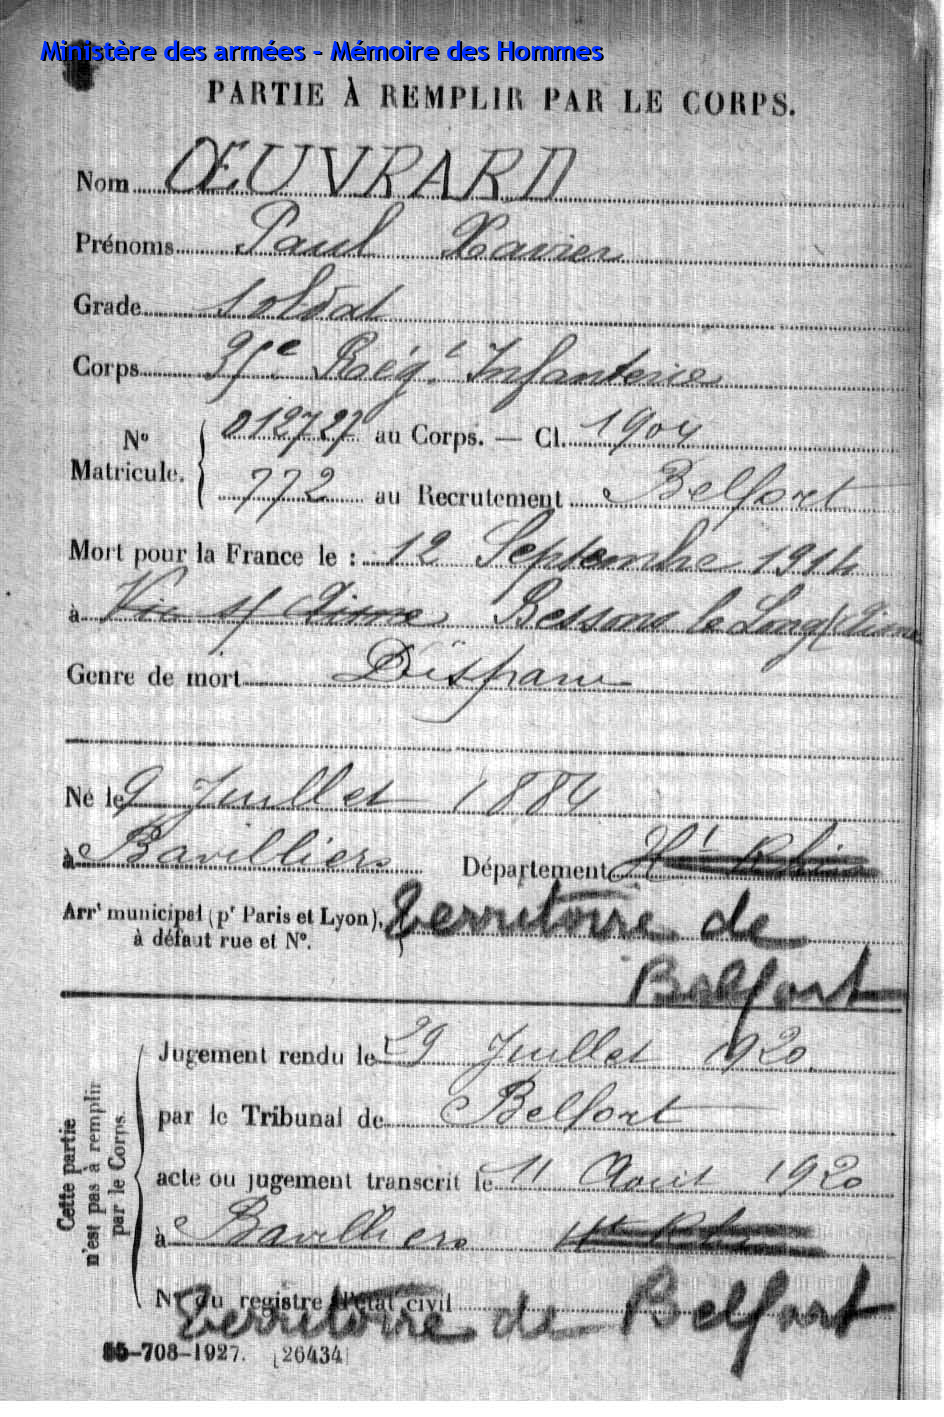 Ministère des armées - Mémoire des Hommes
PARTIE À REMPLIR PAR LE CORPS.
Nom ŒUVRARD
Prénoms Paul Xavier
Grade Soldat
Corps 35e Régt Infanterie
No Matricule. 012727 au Corps. — Cl. 1904
772 au Recrutement Belfort
Mort pour la France le : 12 Septembre 1914
à Vic s/ Aisne Bessons le Long (Aisne
Genre de mort Disparu
Né le 9 Juillet 1884
à Bavilliers Département Ht Rhin
Arrt municipal (pr Paris et Lyon), Territoire de
à défaut rue et No. Belfort
Jugement rendu le 29 Juillet 1920
par le Tribunal de Belfort
acte ou jugement transcrit le 11 Août 1920
à Bavilliers Ht Rhin
No du registre d'état civil
Territoire de Belfort
Cette partie n'est pas à remplir par le Corps.
-708-1927. [26434]